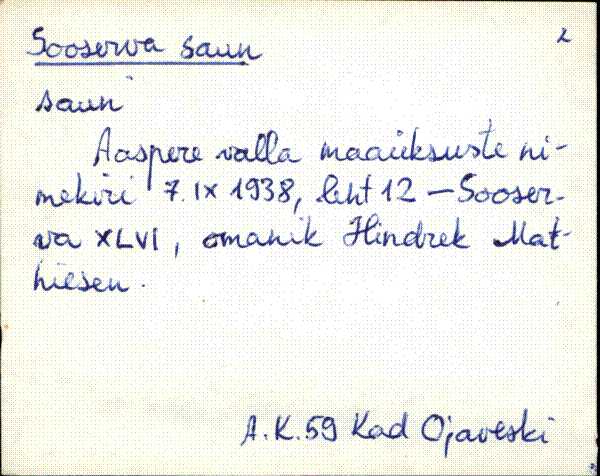 Sooserva saun 2
saun
Aaspere valla maaüksuste ni-
mekiri 7. IX 1938, leht 12 – Sooser-
va XLVI, omanik Hindrek Mat-
hiesen.
A.K. 59 Kad Ojaveski